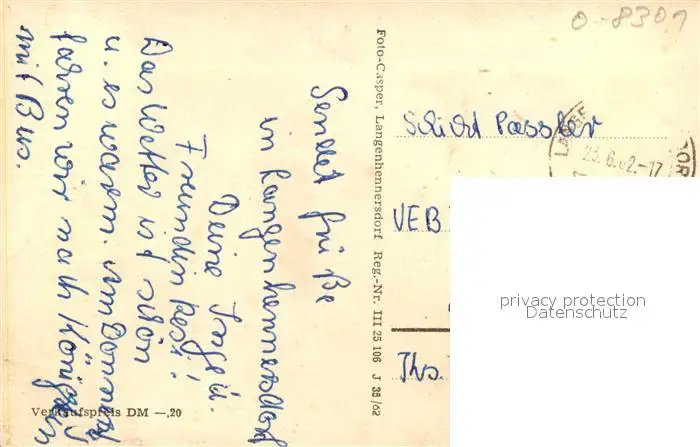 Sendet Grüße
in Langenhennersdorf
Deine Inge u.
Freundin Rosi!
Das Wetter ist schön
u. es warm. Am Donnerstag
fahren wir nach Königstein
mit Bus.
Verkaufspreis DM —,20
Foto-Casper, Langenhennersdorf Reg.-Nr. III 25 106 J 38/62
O-8301
Schicht Passler
23.6.62.-17
VEB
Ths.
privacy protection
Datenschutz